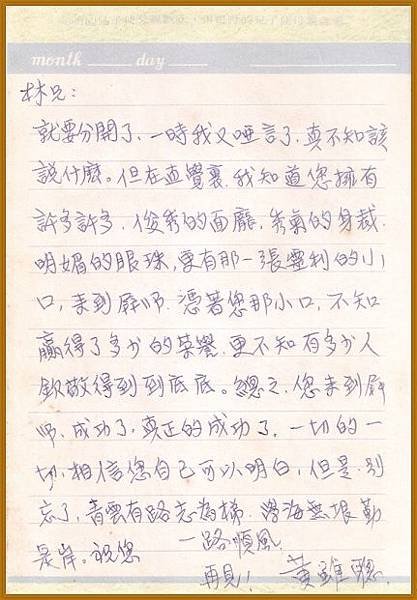 month ____ day ____
林兄:
就要分開了、一時我又啞言了、真不知該
說什麼。但在直覺裏、我知道您擁有
許多許多、俊秀的面龐、秀氣的身裁、
明媚的眼珠、更有那一張靈利的小
口、來到屏師、憑著您那小口、不知
贏得了多少的榮譽、更不知有多少人
欽敬得到到底底。總之、您來到屏
師、成功了、真正的成功了、一切的一
切、相信您自己可以明白、但是、別
忘了、青雲有路志為梯、學海無垠勤
是岸。祝您 一路順風
再見! 黃雄